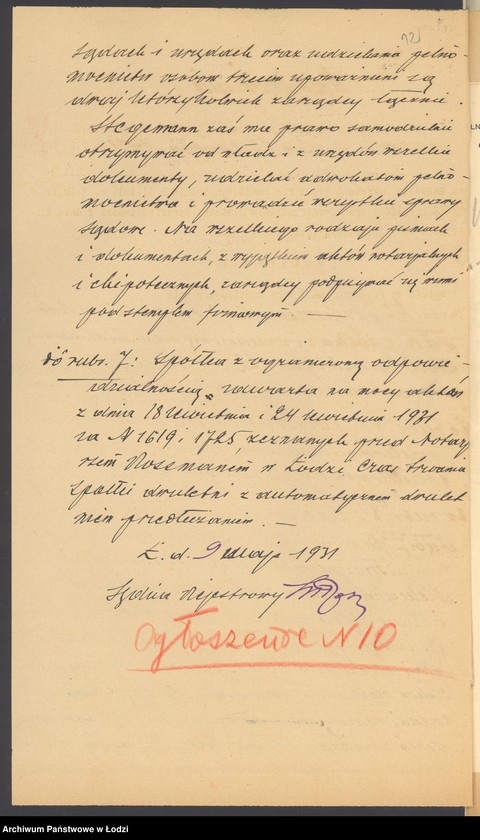 121
sądach i urzędach oraz udzielania pełno-
mocnictw osobom trzecim upoważnieni są
dwaj którzykolwiek zarządcy łącznie.
Stegemann zaś ma prawo samodzielnie
otrzymywać od władz i z urzędów wszelkie
dokumenty, udzielać adwokatom pełno-
mocnictwa i prowadzić wszystkie sprawy
sądowe. Na wszelkiego rodzaju pismach
i dokumentach, z wyjątkiem aktów notarjalnych
i chipotecznych, zarządcy podpisywać są winni
pod stemplem firmowym. —
do rubr. 7: Spółka z ograniczoną odpowie-
dzialnością, zawarta na mocy aktów
z dnia 18 kwietnia i 24 kwietnia 1931
za N 1619 i 1725, zeznanych przed Notarju-
szem Rossmanem w Łodzi Czas trwania
spółki dwuletni z automatycznem dwulet-
niem przedłużaniem. —
Ł. d. 9 maja 1931
Sędzia Rejestrowy
Ogłoszenie N 10
Archiwum Państwowe w Łodzi